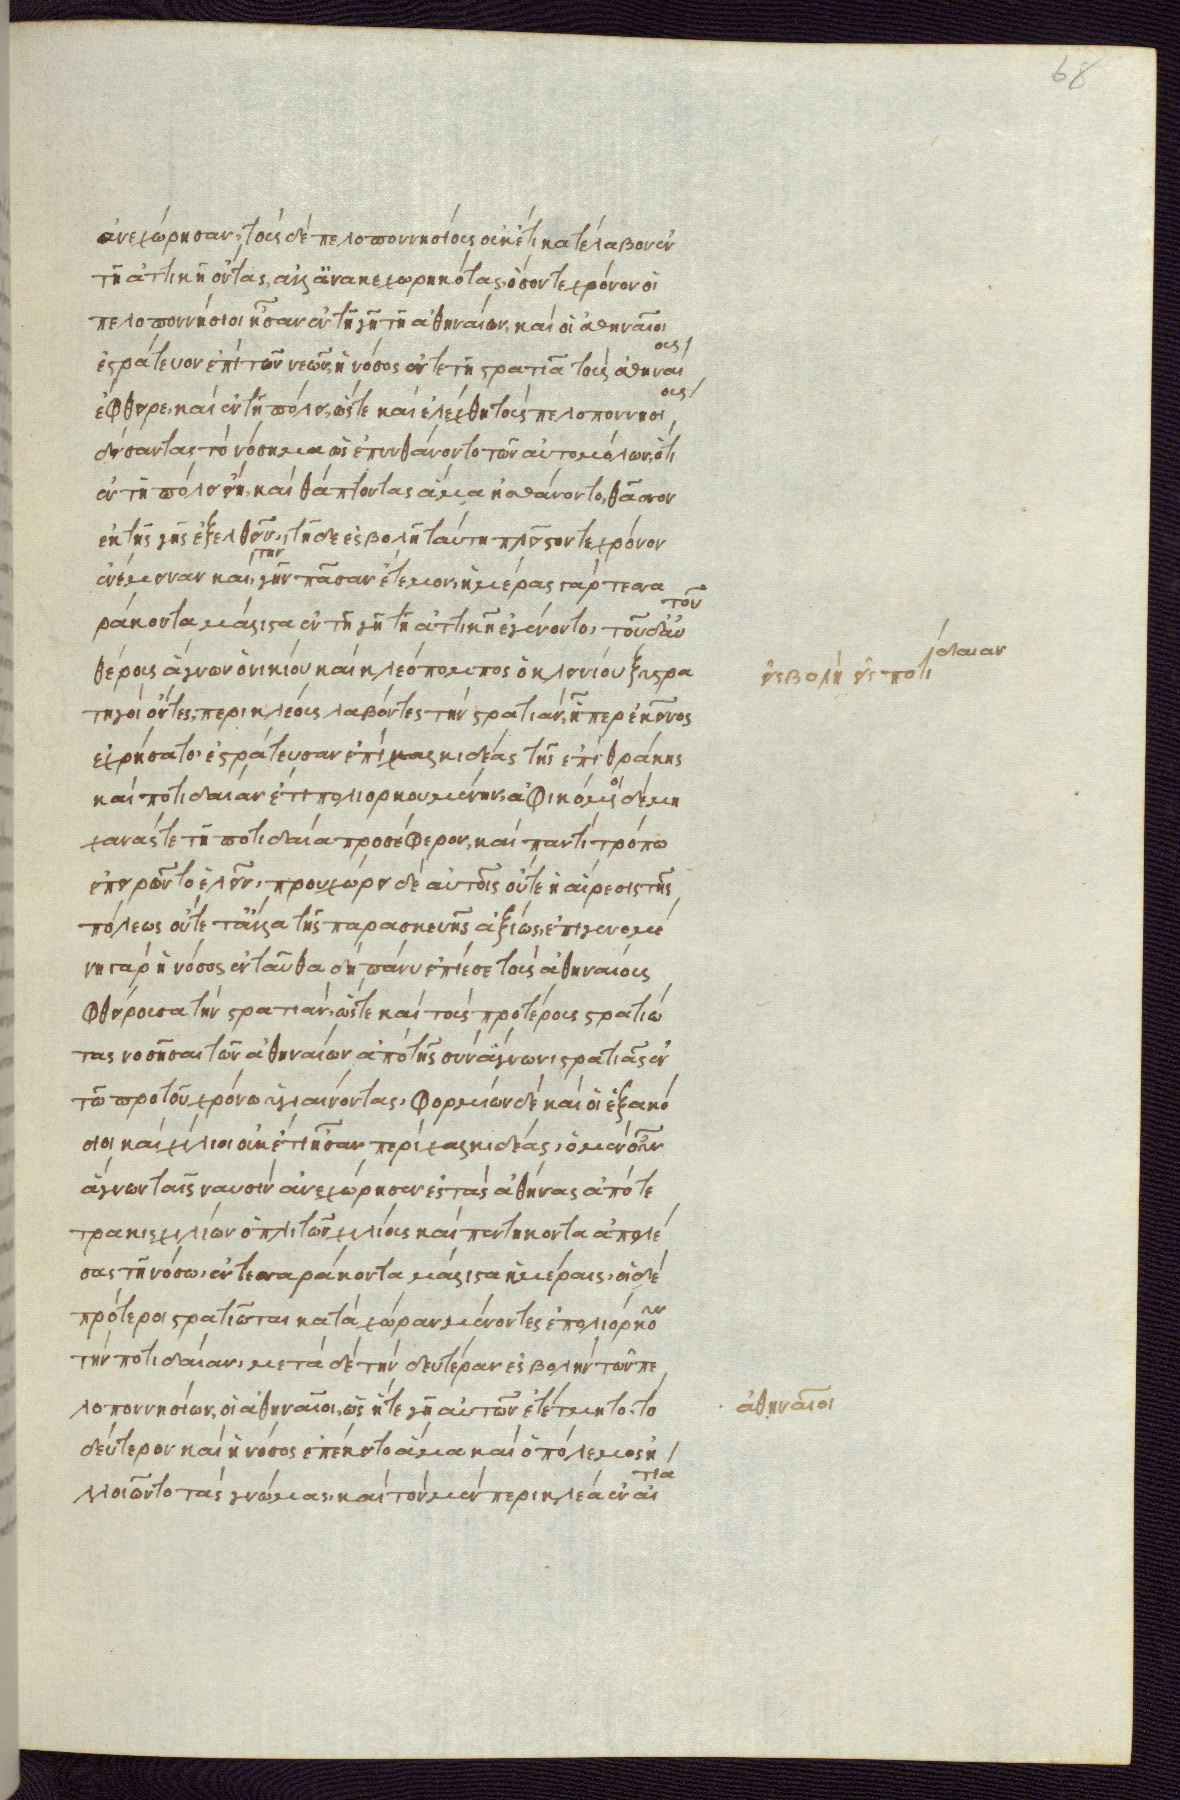 68
ἀνεχώρησαν· τοὺς δὲ πελοποννησίους οὐκέτι κατέλαβον ἐν
τῆ ἀττικῆ ὄντας, ἀλλ᾽ ἀνακεχωρηκότας· ὅσον τε χρόνον οἱ
πελοποννήσιοι ἦσαν ἐν τῆ γῆ τῆ ἀθηναίων, καὶ οἱ ἀθηναῖοι
ἐστράτευον ἐπὶ τῶν νεῶν, ἡ νόσος ἔν τε τῆ στρατιᾶ τοὺς ἀθηναί
ους
ἔφθειρε, καὶ ἐν τῆ πόλει, ὥστε καὶ ἐλέχθη τοὺς πελοποννησί
ους
δείσαντας τὸ νόσημα ὡς ἐπυνθάνοντο τῶν αὐτομόλων, ὅτι
ἐν τῆ πόλει εἴη, καὶ θάπτοντας ἅμα ἠσθάνοντο, θᾶσσον
ἐκ τῆς γῆς ἐξελθεῖν· τῆ δὲ ἐσβολῆ ταύτη πλεῖστον τε χρόνον
ἐνέμειναν καὶ τὴν γῆν πᾶσαν ἔτεμον, ἡμέρας γὰρ τεσσα
ράκοντα μάλιστα ἐν τῆ γῆ τῆ ἀττικῆ ἐγένοντο· τοῦ δ᾽ αὐ
τοῦ
θέρους ἅγνων ὁ νικίου καὶ κλεόπομπος ὁ κλεινίου ξυστρα
τηγοὶ ὄντες, περικλέους λαβόντες τὴν στρατιὰν, ἧπερ ἐκεῖνος
ἐχρήσατο· ἐστράτευσαν ἐπὶ χαλκιδέας τῆς ἐπὶ θράκης
καὶ ποτίδαιαν ἔτι πολιορκουμένην, ἀφικόμενοι δὲ μη
χανάς τε τῆ ποτιδαία προσέφερον, καὶ παντὶ τρόπω
ἐπειρῶντο ἑλεῖν· προυχώρει δὲ αὐτοῖς οὔτε ἡ αἵρεσις τῆς
πόλεως οὔτε τἆλλα τῆς παρασκευῆς ἀξίως, ἐπιγενομέ
νη γὰρ ἡ νόσος ἐνταῦθα δὴ πάνυ ἐπίεσε τοὺς ἀθηναίους
φθείρουσα τὴν στρατιὰν, ὥστε καὶ τοὺς προτέρους στρατιώ
τας νοσῆσαι τῶν ἀθηναίων ἀπὸ τῆς σὺν ἅγνωνι στρατιᾶς ἐν
τῶ πρὸ τοῦ χρόνω ὑγιαίνοντας· φορμίων δὲ καὶ οἱ ἑξακό
σιοι καὶ χίλιοι οὐκέτι ἦσαν περὶ χαλκιδέας· ὁ μὲν οὖν
ἅγνων ταῖς ναυσὶν ἀνεχώρησεν ἐς τὰς ἀθήνας ἀπὸ τε
τρακισχιλίων ὁπλιτῶν χιλίους καὶ πεντήκοντα ἀπολέ
σας τῆ νόσω· ἐν τεσσαράκοντα μάλιστα ἡμέραις· οἱ δὲ
πρότεροι στρατιῶται κατὰ χώραν μένοντες ἐπολιόρκουν
τὴν ποτίδαιαν· μετὰ δὲ τὴν δευτέραν ἐσβολὴν τῶν πε
λοποννησίων, οἱ ἀθηναῖοι, ὡς ἥ τε γῆ αὐτῶν ἐτέτμητο τὸ
δεύτερον καὶ ἡ νόσος ἐπέκειτο ἅμα καὶ ὁ πόλεμος ἠ
λλοίωντο τὰς γνώμας, καὶ τὸν μὲν περικλέα ἐν αἰ
τία
εἰσβολὴ εἰς ποτί
δαιαν
ἀθηναῖοι